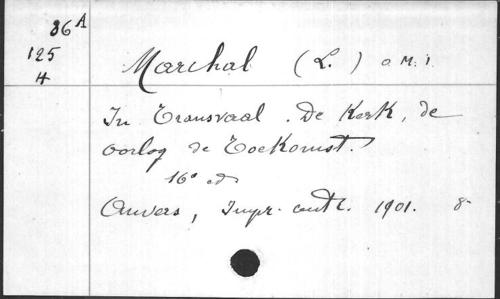 86A
125
H
Marchal (L.) O.M.I.
In Transvaal. De Kerk, de
oorlog de Toekomst.
16e ed
Anvers, Impr. centr. 1901. 8-